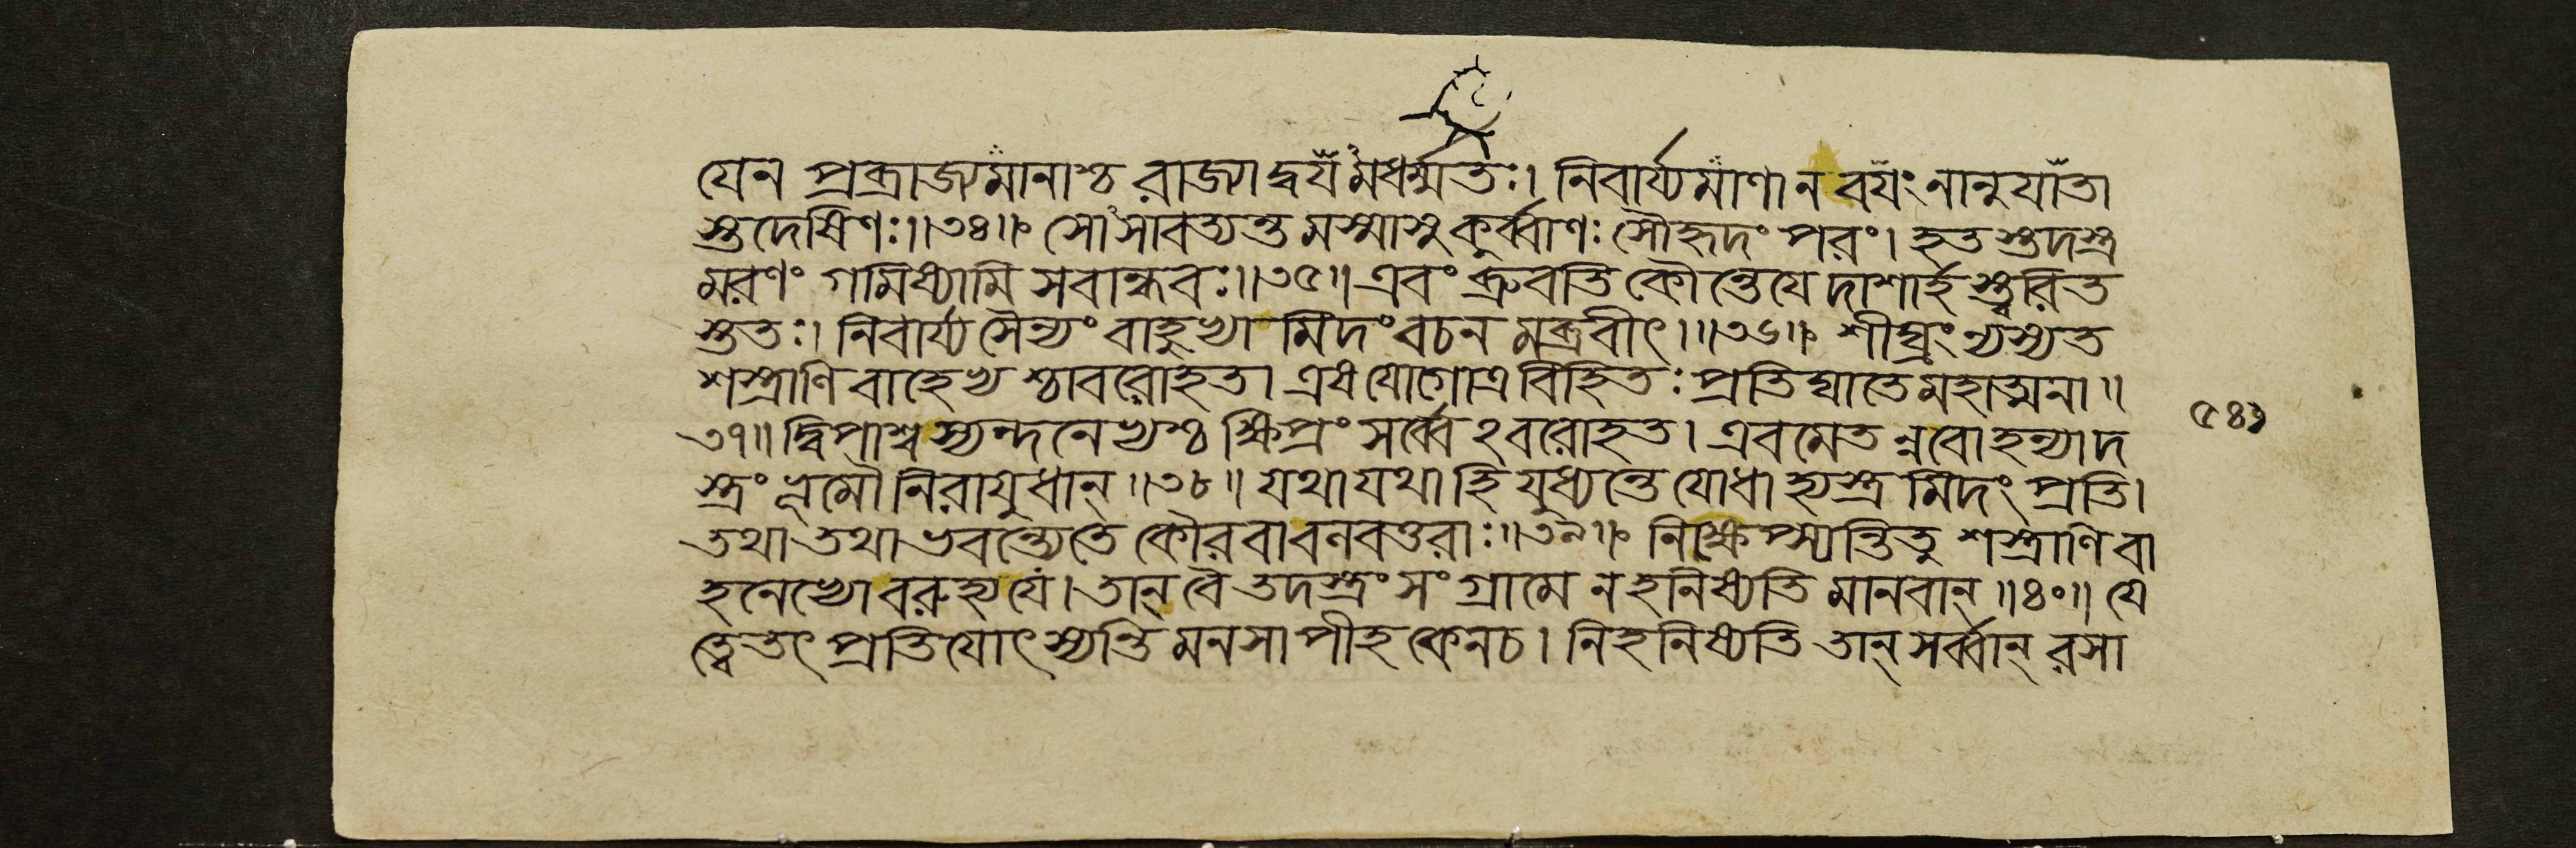 যেন প্রব্রাজ্যমানাশ্চ রাজ্যাদ্বয়মধর্ম্মতঃ। নিবার্য্যমাণান বয়ং নানুযাতা
স্তদেষিণঃ॥৩৪॥ সোসাবত্যন্তমস্মাসু কুর্ব্বাণঃ সৌহৃদং পরং। হতস্তদস্ত্র
মরণং গমিষ্যামি সবান্ধবঃ॥৩৫॥ এবং ব্রুবতি কৌন্তেযে দাশার্হস্ত্বরিত
স্ততঃ। নিবার্য্য সৈন্যং বাহুভ্যামিদং বচনমব্রবীৎ।॥৩৬॥ শীঘ্রং ন্যস্যত
শস্ত্রাণি বাহেভ্যশ্চাবরোহত। এষ যোগোএ বিহিতঃ প্রতিঘাতে মহাত্মনা॥
৩৭॥ দ্বিপাশ্বস্যন্দনেভ্যশ্চ ক্ষিপ্রং সর্ব্বেঽবরোহত। এবমেতন্নবো হন্যাদ
স্ত্রং ভূমৌ নিরাযুধান্॥৩৮॥ যথা যথা হি যুধ্যন্তে যোধা হ্যস্ত্রমিদং প্রতি।
তথা তথা ভবন্ত্যেতে কৌরবা বলবত্তরাঃ॥৩৯॥ নিক্ষেপ্স্যন্তি তু শস্ত্রাণি বা
হনেভ্যোবরুহ্য যে। তান্ বৈ তদস্ত্রং সংগ্রামে ন হনিষ্যতি মানবান্॥৪০॥ যে
ত্বেতৎ প্রতিযোৎস্যন্তি মনসাপীহ কেনচ। নিহনিষ্যতি তান্ সর্ব্বান্ রসা
৫৪১